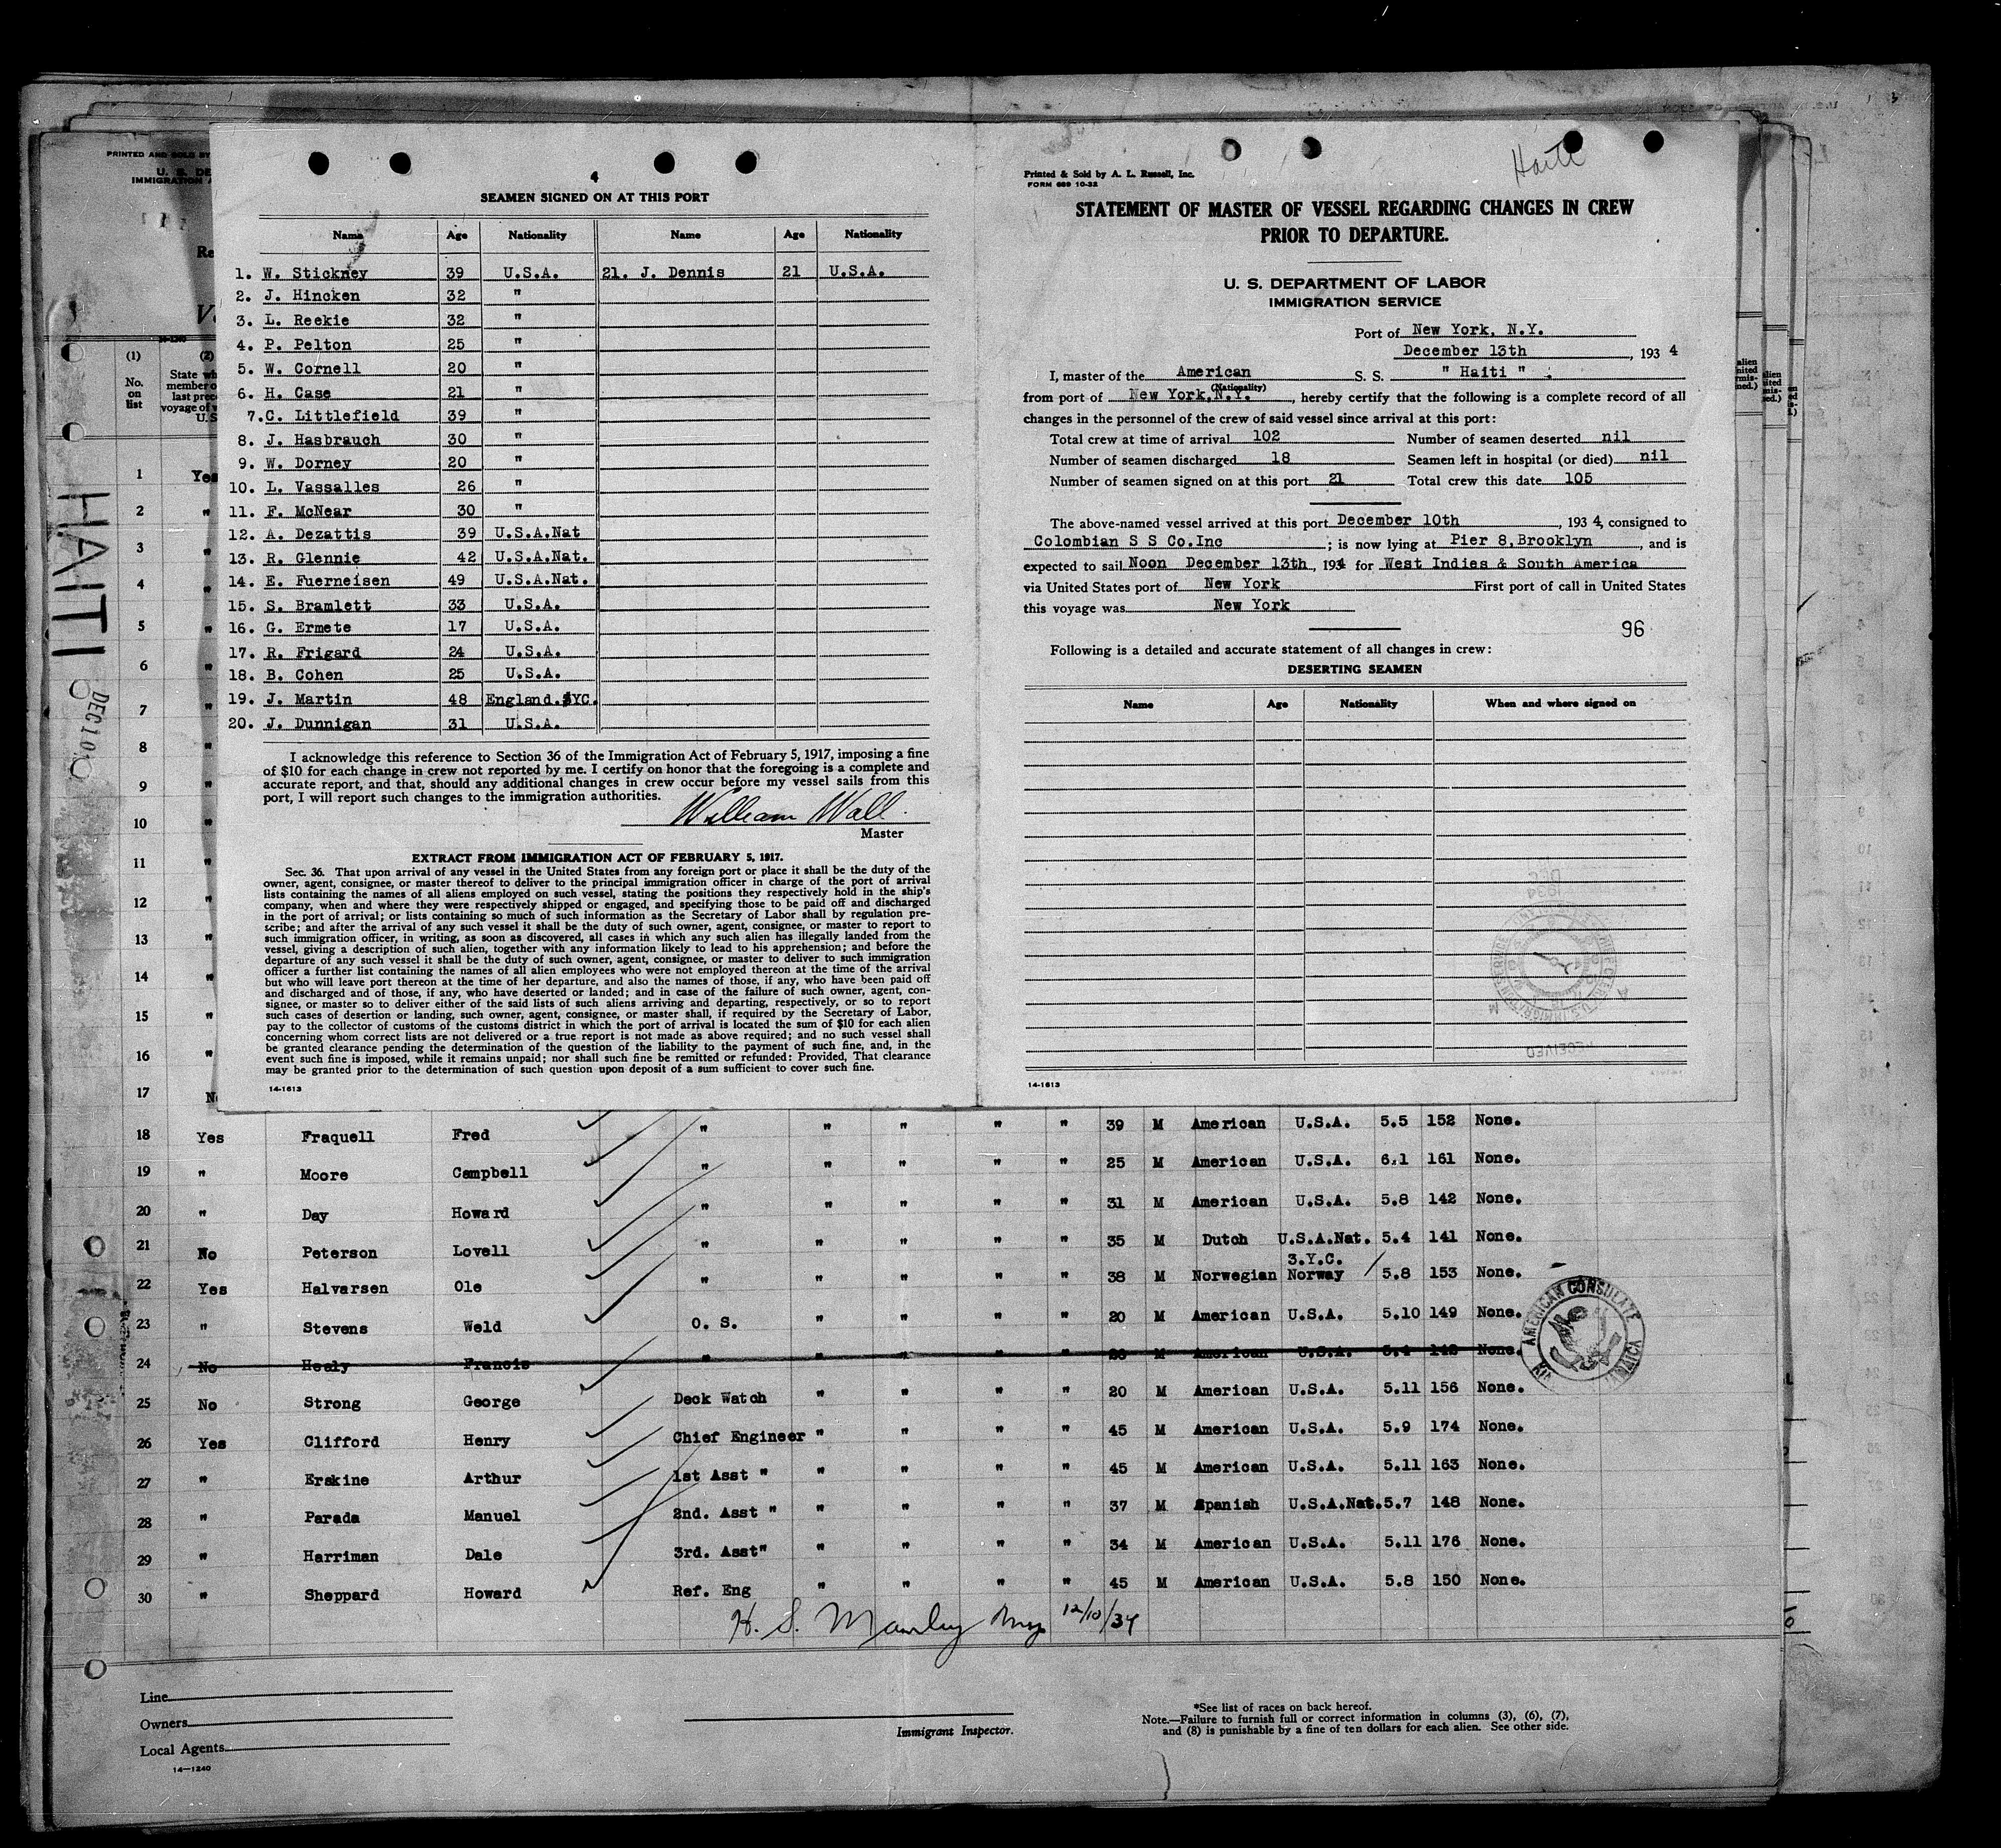 PRINTED AND SOLD BY
U. S. DE
IMMIGRATION
Re
V
(1)
No.
on
list
(2)
State wh
member o
last prec
voyage of v
U. S
HAITI
DEC 10
4
SEAMEN SIGNED ON AT THIS PORT
Name Age Nationality Name Age Nationality
1. W. Stickney 39 U.S.A. 21. J. Dennis 21 U.S.A.
2. J. Hincken 32 "
3. L. Reekie 32 "
4. P. Pelton 25 "
5. W. Cornell 20 "
6. H. Case 21 "
7. C. Littlefield 39 "
8. J. Hasbrauch 30 "
9. W. Dorney 20 "
10. L. Vassalles 26 "
11. F. McNear 30 "
12. A. Dezattis 39 U.S.A.Nat
13. R. Glennie 42 U.S.A.Nat.
14. E. Fuerneisen 49 U.S.A.Nat.
15. S. Bramlett 33 U.S.A.
16. G. Ermete 17 U.S.A.
17. R. Frigard 24 U.S.A.
18. B. Cohen 25 U.S.A.
19. J. Martin 48 England. YC.
20. J. Dunnigan 31 U.S.A.
I acknowledge this reference to Section 36 of the Immigration Act of February 5, 1917, imposing a fine
of $10 for each change in crew not reported by me. I certify on honor that the foregoing is a complete and
accurate report, and that, should any additional changes in crew occur before my vessel sails from this
port, I will report such changes to the immigration authorities.
William Wall
Master
EXTRACT FROM IMMIGRATION ACT OF FEBRUARY 5, 1917.
Sec. 36. That upon arrival of any vessel in the United States from any foreign port or place it shall be the duty of the
owner, agent, consignee, or master thereof to deliver to the principal immigration officer in charge of the port of arrival
lists containing the names of all aliens employed on such vessel, stating the positions they respectively hold in the ship's
company, when and where they were respectively shipped or engaged, and specifying those to be paid off and discharged
in the port of arrival; or lists containing so much of such information as the Secretary of Labor shall by regulation pre-
scribe; and after the arrival of any such vessel it shall be the duty of such owner, agent, consignee, or master to report to
such immigration officer, in writing, as soon as discovered, all cases in which any such alien has illegally landed from the
vessel, giving a description of such alien, together with any information likely to lead to his apprehension; and before the
departure of any such vessel it shall be the duty of such owner, agent, consignee, or master to deliver to such immigration
officer a further list containing the names of all alien employees who were not employed thereon at the time of the arrival
but who will leave port thereon at the time of her departure, and also the names of those, if any, who have been paid off
and discharged and of those, if any, who have deserted or landed; and in case of the failure of such owner, agent, con-
signee, or master so to deliver either of the said lists of such aliens arriving and departing, respectively, or so to report
such cases of desertion or landing, such owner, agent, consignee, or master shall, if required by the Secretary of Labor,
pay to the collector of customs of the customs district in which the port of arrival is located the sum of $10 for each alien
concerning whom correct lists are not delivered or a true report is not made as above required; and no such vessel shall
be granted clearance pending the determination of the question of the liability to the payment of such fine, and, in the
event such fine is imposed, while it remains unpaid; nor shall such fine be remitted or refunded: Provided, That clearance
may be granted prior to the determination of such question upon deposit of a sum sufficient to cover such fine.
14-1613
Haiti
Printed & Sold by A. L. Russell, Inc.
FORM 689 10-32
STATEMENT OF MASTER OF VESSEL REGARDING CHANGES IN CREW
PRIOR TO DEPARTURE.
U. S. DEPARTMENT OF LABOR
IMMIGRATION SERVICE
Port of New York, N.Y.
December 13th, 1934
I, master of the American S. S. " Haiti " .
(Nationality)
from port of New York, N.Y., hereby certify that the following is a complete record of all
changes in the personnel of the crew of said vessel since arrival at this port:
Total crew at time of arrival 102 Number of seamen deserted nil
Number of seamen discharged 18 Seamen left in hospital (or died) nil
Number of seamen signed on at this port 21 Total crew this date 105
The above-named vessel arrived at this port December 10th, 1934, consigned to
Colombian S S Co.Inc ; is now lying at Pier 8, Brooklyn, and is
expected to sail Noon December 13th, 1934 for West Indies & South America
via United States port of New York First port of call in United States
this voyage was New York
96
Following is a detailed and accurate statement of all changes in crew:
DESERTING SEAMEN
Name Age Nationality When and where signed on
RECEIVED
14-1613
1 Yes
2 "
3 "
4 "
5 "
6 "
7 "
8 "
9 "
10 "
11 "
12 "
13 "
14 "
15 "
16 "
17 N
18 Yes Fraquell Fred " " " " " 39 M American U.S.A. 5.5 152 None.
19 " Moore Campbell " " " " " 25 M American U.S.A. 6.1 161 None.
20 " Day Howard " " " " " 31 M American U.S.A. 5.8 142 None.
21 No Peterson Lovell " " " " " 35 M Dutch U.S.A.Nat. 5.4 141 None.
3.Y.C.
22 Yes Halvarsen Ole " " " " " 38 M Norwegian Norway 5.8 153 None.
23 " Stevens Weld O. S. " " " " 20 M American U.S.A. 5.10 149 None.
24 No Healy Francis " " " " " M American U.S.A. None.
25 No Strong George Deck Watch " " " " 20 M American U.S.A. 5.11 156 None.
26 Yes Clifford Henry Chief Engineer " " " " 45 M American U.S.A. 5.9 174 None.
27 " Erskine Arthur 1st Asst " " " " " 45 M American U.S.A. 5.11 163 None.
28 " Parada Manuel 2nd. Asst " " " " " 37 M Spanish U.S.A.Nat. 5.7 148 None.
29 " Harriman Dale 3rd. Asst" " " " " 34 M American U.S.A. 5.11 176 None.
30 " Sheppard Howard Ref. Eng " " " " 45 M American U.S.A. 5.8 150 None.
AMERICAN CONSULATE
H. S. Manley 12/10/34
Line
Owners
Local Agents
14-1240
Immigrant Inspector.
*See list of races on back hereof.
Note.—Failure to furnish full or correct information in columns (3), (6), (7),
and (8) is punishable by a fine of ten dollars for each alien. See other side.